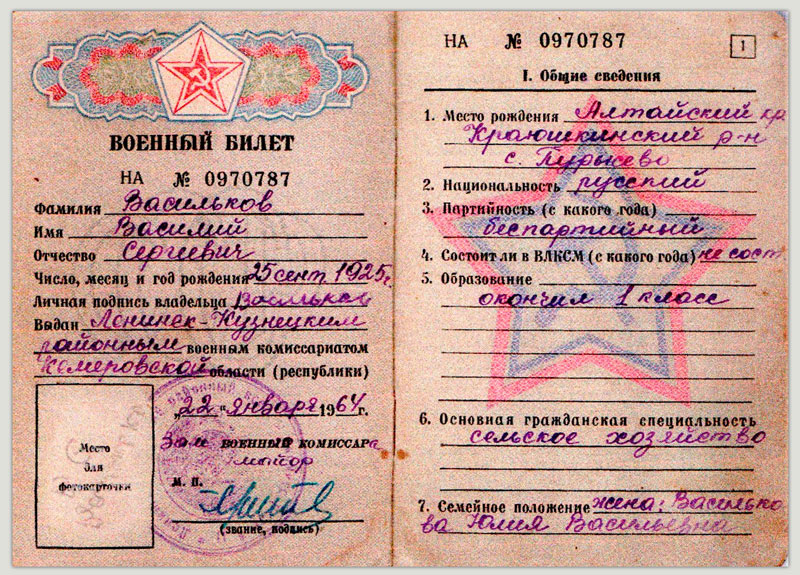 ВОЕННЫЙ БИЛЕТ
НА № 0970787
Фамилия Васильков
Имя Василий
Отчество Сергиевич
Число, месяц и год рождения 25 сент. 1925г.
Личная подпись владельца Васильков
Выдан Ленинск-Кузнецким
районным военным комиссариатом
Кемеровской области (республики)
„22" января 1964 г.
Зам ВОЕННЫЙ КОМИССАРа
майор
М. П.
(звание, подпись)
Место
для
фотокарточки
НА № 0970787
1
I. Общие сведения
1. Место рождения Алтайский кр
Краюшкинский р-н
с. Пурысево
2. Национальность русский
3. Партийность (с какого года)
беспартийный
4. Состоит ли в ВЛКСМ (с какого года) не сост.
5. Образование
окончил 1 класс
6. Основная гражданская специальность
сельское хозяйство
7. Семейное положение жена: Василько
ва Юлия Васильевна